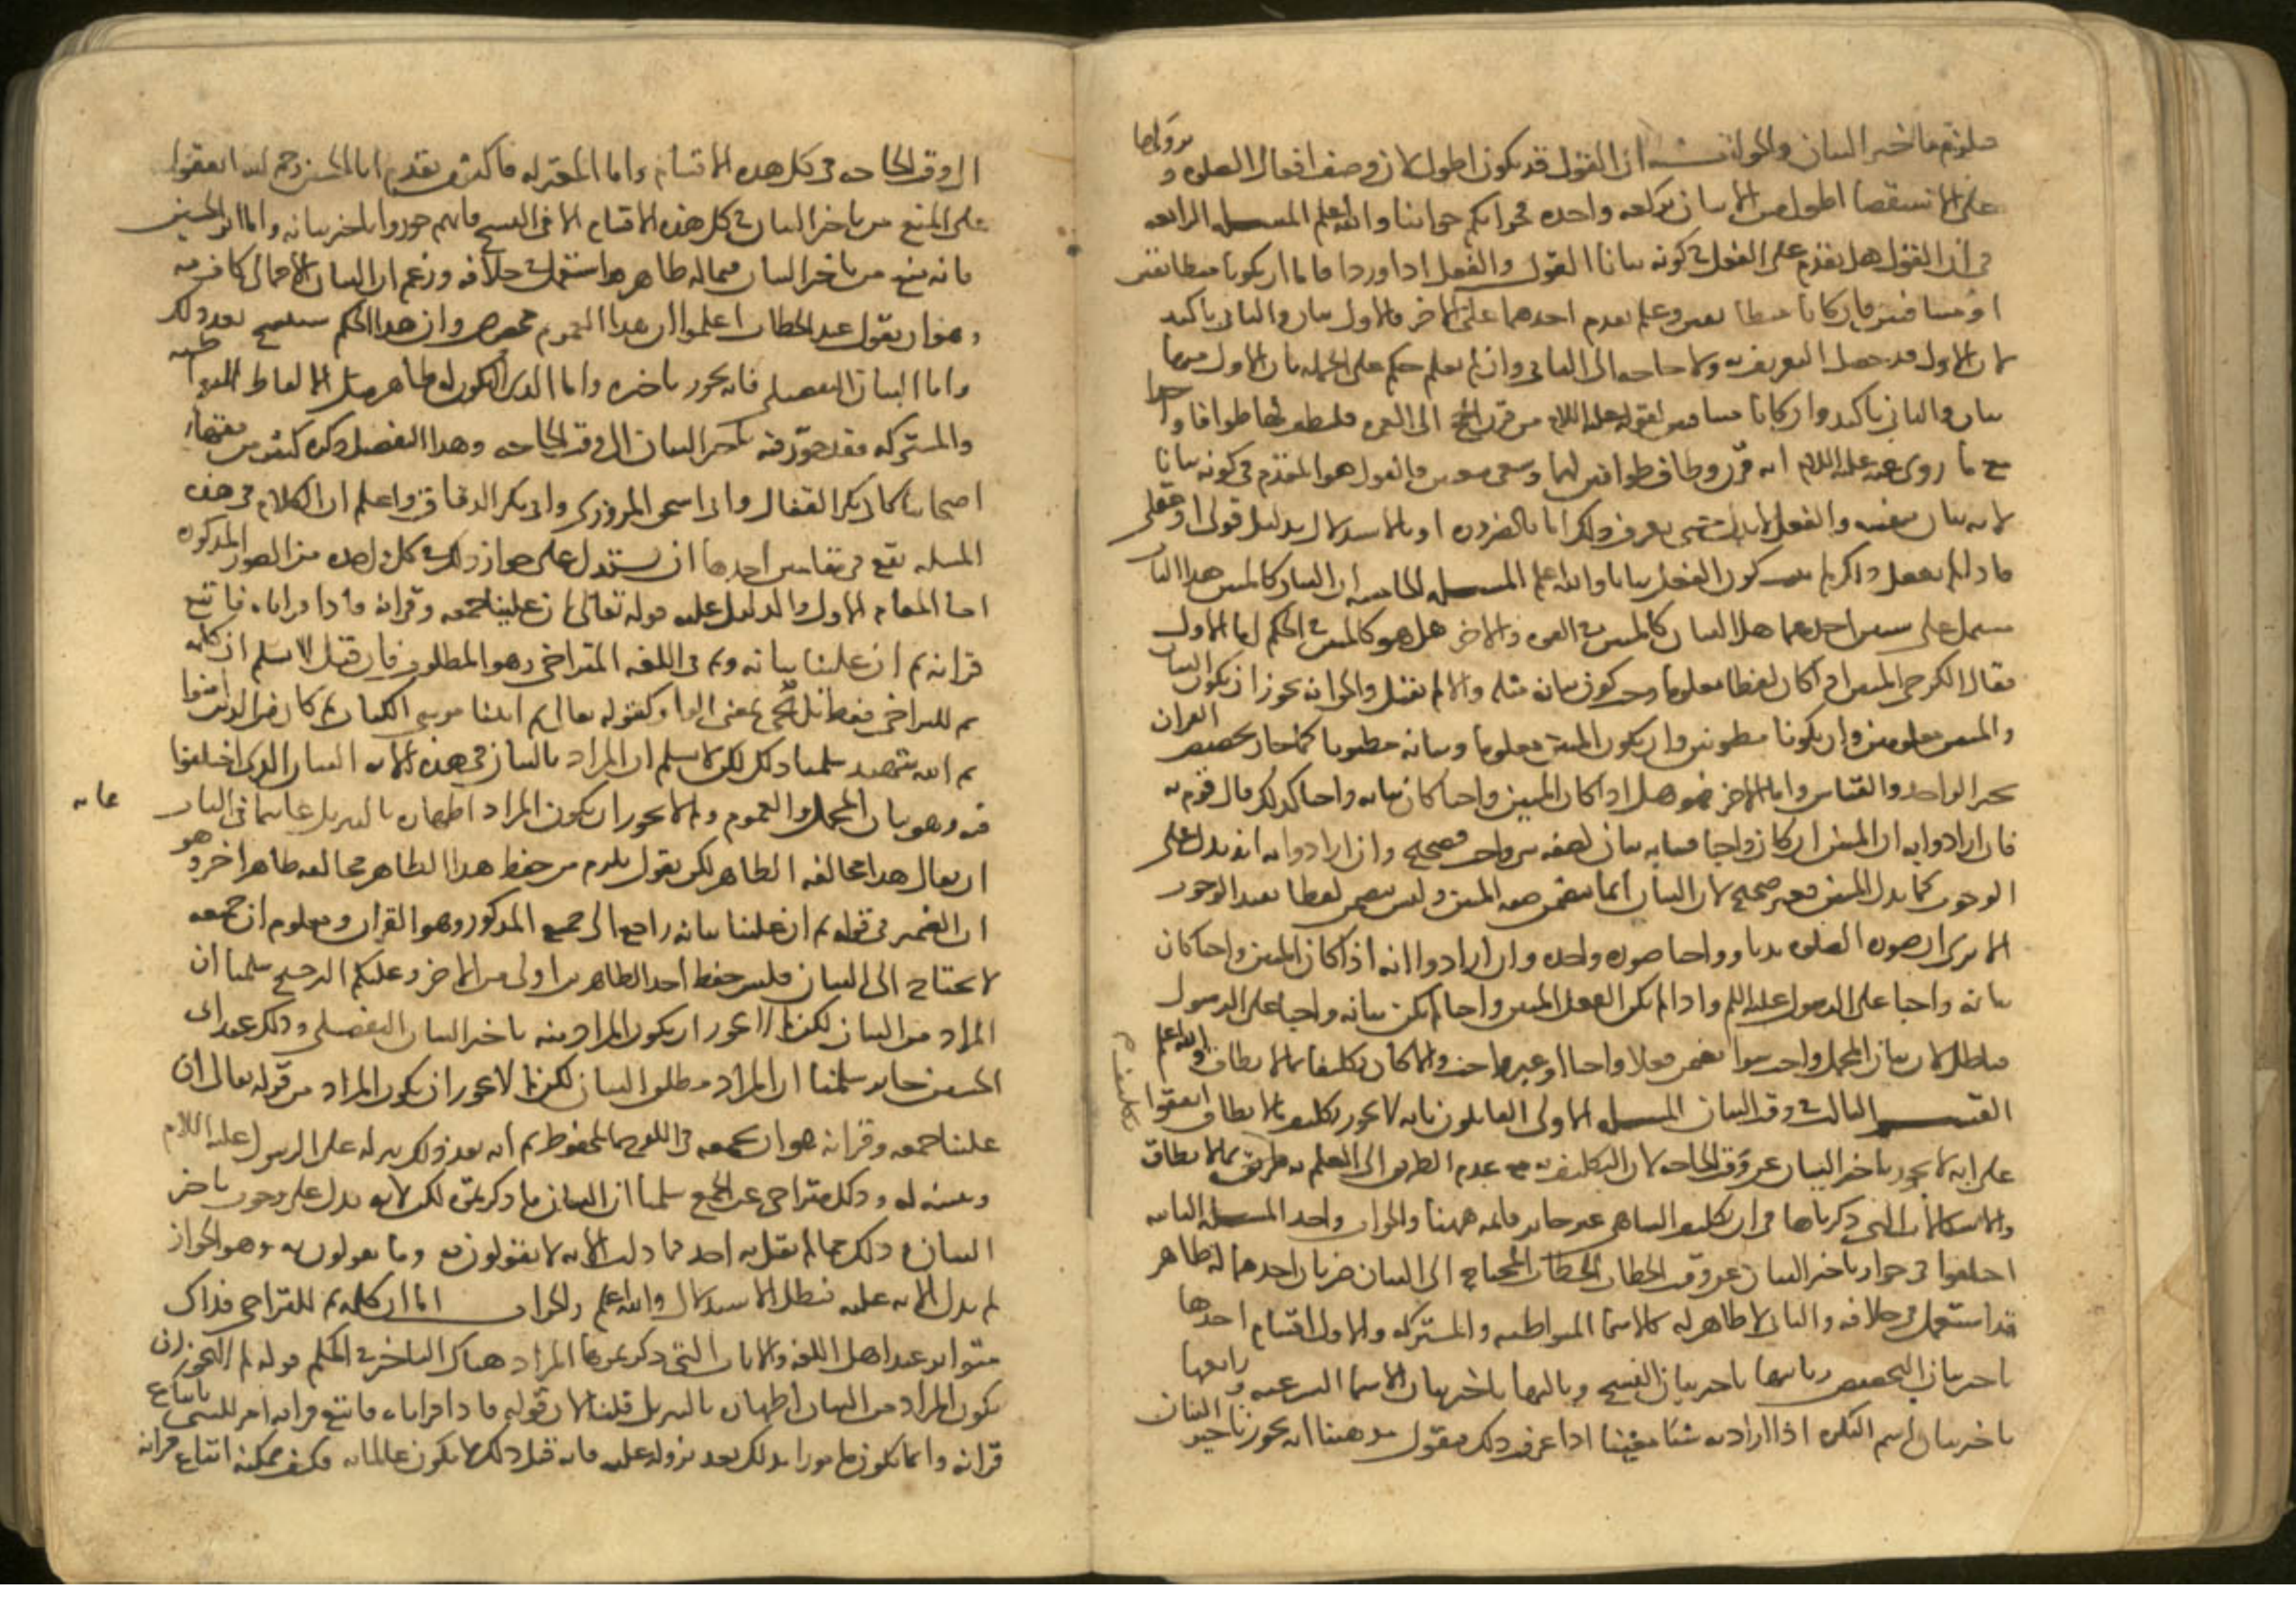 فيلزم تاخير البيان والجواب ان القول قد يكون اطول لان وصف افعال الصلوه وتروكها
على الاستقصا اطول من الاتيان بركعه واحده فجوابكم جوابنا والله اعلم المسله الرابعه
في ان القول هل يقدم على الفعل في كونه بيانا القول والفعل اذا وردا فاما ان يكونا متطابقين
او متنافيين فان كانا متطابقين وعلم تقدم احدهما على الاخر فالاول بيان والثاني تاكيد
لان الاول قد حصل التعريف به ولا حاجه الى الثاني وان لم نعلم حكم على الجمله بان الاول منهما
بيان والثاني تاكيد وان كانا متنافيين كقوله عليه السلام من قرن الحج الى العمره فليطف لهما طوافا واحدا
مع ما روى عنه عليه السلام انه قرن وطاف طوافين لهما وسعى سعيين فالقول هو المقدم في كونه بيانا
لانه بيان بنفسه والفعل لا يدل حتى يعرف ذلك اما بالضروره او بالاستدلال بدليل قولي او عقلي
فاذا لم يعقل ذلك لم يثبت كون الفعل بيانا والله اعلم المسله الخامسه ان البيان كالمبين هذا الباب
يشتمل على شيين احدهما هل البيان كالمبين في القوه والاخر هل هو كالمبين في الحكم اما الاول
فقال الكرخي المبين اذا كان لفظا معلوما وجب كون بيانه مثله والا لم يقبل والجواب انه يجوز ان يكون البيان
والمبين معلومين وان يكونا مظنونين وان يكون المبين معلوما وبيانه مظنونا كما جاز تخصيص القران
بخبر الواحد والقياس واما الاخر فهو هل اذا كان المبين واجبا كان بيانه واجبا كذلك قال قوم به
فان ارادوا به ان المبين ان كان واجبا فبيانه بيان لصفه شي واجب فصحيح وان ارادوا به انه يدل على
الوجوب كما يدل المبين فغير صحيح لان البيان انما يتضمن صفه المبين وليس يتضمن لفظا يفيد الوجوب
الا ترى ان صوره الصلوه ندبا وواجبا صوره واحده وان ارادوا انه اذا كان المبين واجبا كان
بيانه واجبا على الرسول عليه السلم واذا لم يكن الفعل المبين واجبا لم يكن بيانه واجبا على الرسول
فباطل لان بيان المجمل واجب سوا تضمن فعلا واجبا او غير واجب والا كان تكليفا بما لا يطاق والله اعلم
القسم الثالث في وقت البيان المسله الاولى القايلون بانه لا يجوز تكليف ما لا يطاق اتفقوا
على انه لا يجوز تاخير البيان عن وقت الحاجه لان التكليف به مع عدم الطريق الى العلم به تكليف بما لا يطاق
والاشكالات التي ذكرناها في ان تكليف الساهي غير جايز قايمه ههنا والجواب واحد المسله الثانيه
اختلفوا في جواز تاخير البيان عن وقت الخطاب الخطاب المحتاج الى البيان ضربان احدهما له ظاهر
قد استعمل في خلافه والثاني لا ظاهر له كالاسما المتواطيه والمشتركه والاول اقسام احدها
تاخير بيان التخصيص وثانيها تاخير بيان النسخ وثالثها تاخير بيان الاسما الشرعيه ورابعها
تاخير بيان اسم النكره اذا اراد به شيا معينا اذا عرفت ذلك فنقول مذهبنا انه يجوز تاخير البيان
الى وقت الحاجه في كل هذه الاقسام واما المعتزله فاكثر من تقدم ابا الحسين رحمه الله اتفقوا
على المنع من تاخير البيان في كل هذه الاقسام الا في النسخ فانهم جوزوا تاخير بيانه واما ابو الحسين
فانه منع من تاخير البيان فيما له ظاهر استعمل في خلافه وزعم ان البيان الاجمالي كاف فيه
وهو ان يقول عند الخطاب اعلموا ان هذا العموم مخصوص وان هذا الحكم سينسخ بعد ذلك
واما البيان التفصيلي فانه يجوز تاخيره واما الذي لا يكون له ظاهر مثل الالفاظ المتواطيه
والمشتركه فقد جوز فيه تاخير البيان الى وقت الحاجه وهذا التفصيل ذكره كثير من فقهاء
اصحابنا كابي بكر القفال وابي اسحق المروزي وابي بكر الدقاق واعلم ان الكلام في هذه
المسله يقع في مقامين احدهما ان يستدل على جواز ذلك في كل واحده من الصور المذكوره
اما المقام الاول والدليل عليه قوله تعالى ان علينا جمعه وقرانه فاذا قراناه فاتبع
قرانه ثم ان علينا بيانه وثم في اللغه للتراخي وهو المطلوب فان قيل لا نسلم ان كلمه
ثم للتراخي فقط بل تجي بمعنى الواو كقوله تعالى ثم اتينا موسى الكتاب ثم كان من الذين امنوا
ثم الله شهيد سلمنا ذلك لكن لا نسلم ان المراد بالبيان في هذه الايه البيان الذي اختلفنا
فيه وهو بيان المجمل والعموم ولم لا يجوز ان يكون المراد اظهاره بالتنزيل غايه ما في الباب
ان يقال هذا مخالفه الظاهر لكن نقول يلزم من حفظ هذا الظاهر مخالفه ظاهر اخر وهو
ان الضمير في قوله ثم ان علينا بيانه راجع الى جميع المذكور وهو القران ومعلوم ان جميعه
لا يحتاج الى البيان فليس حفظ احد الظاهرين اولى من الاخر وعليكم الترجيح سلمنا ان
المراد من البيان لكن لم لا يجوز ان يكون المراد منه تاخير البيان التفصيلي وذلك عند ابي
الحسين جايز سلمنا ان المراد مطلق البيان لكن لم لا يجوز ان يكون المراد من قوله تعالى ان
علينا جمعه وقرانه هو ان نجمعه في اللوح المحفوظ ثم انه بعد ذلك ينزله على الرسول عليه السلام
ويبينه له وذلك متراخ عن الجمع سلمنا ان البيان ما ذكرتموه لكن الايه تدل على وجوب تاخير
البيان وذلك مما لم يقل به احد فما دلت الايه لا تقولون به وما تقولون به وهو الجواز
لم تدل الايه عليه فبطل الاستدلال والله اعلم والجواب اما ان كلمه ثم للتراخي فذاك
متواتر عند اهل اللغه والايات التي ذكرتموها المراد هناك التاخير في الحكم قوله لم لا يجوز ان
يكون المراد من البيان اظهاره بالتنزيل قلنا لان قوله فاذا قراناه فاتبع قرانه امر للنبي باتباع
قرانه وانما يكون مامورا بذلك بعد نزوله عليه فانه قبل ذلك لا يكون عالما به فكيف يمكنه اتباع قرانه